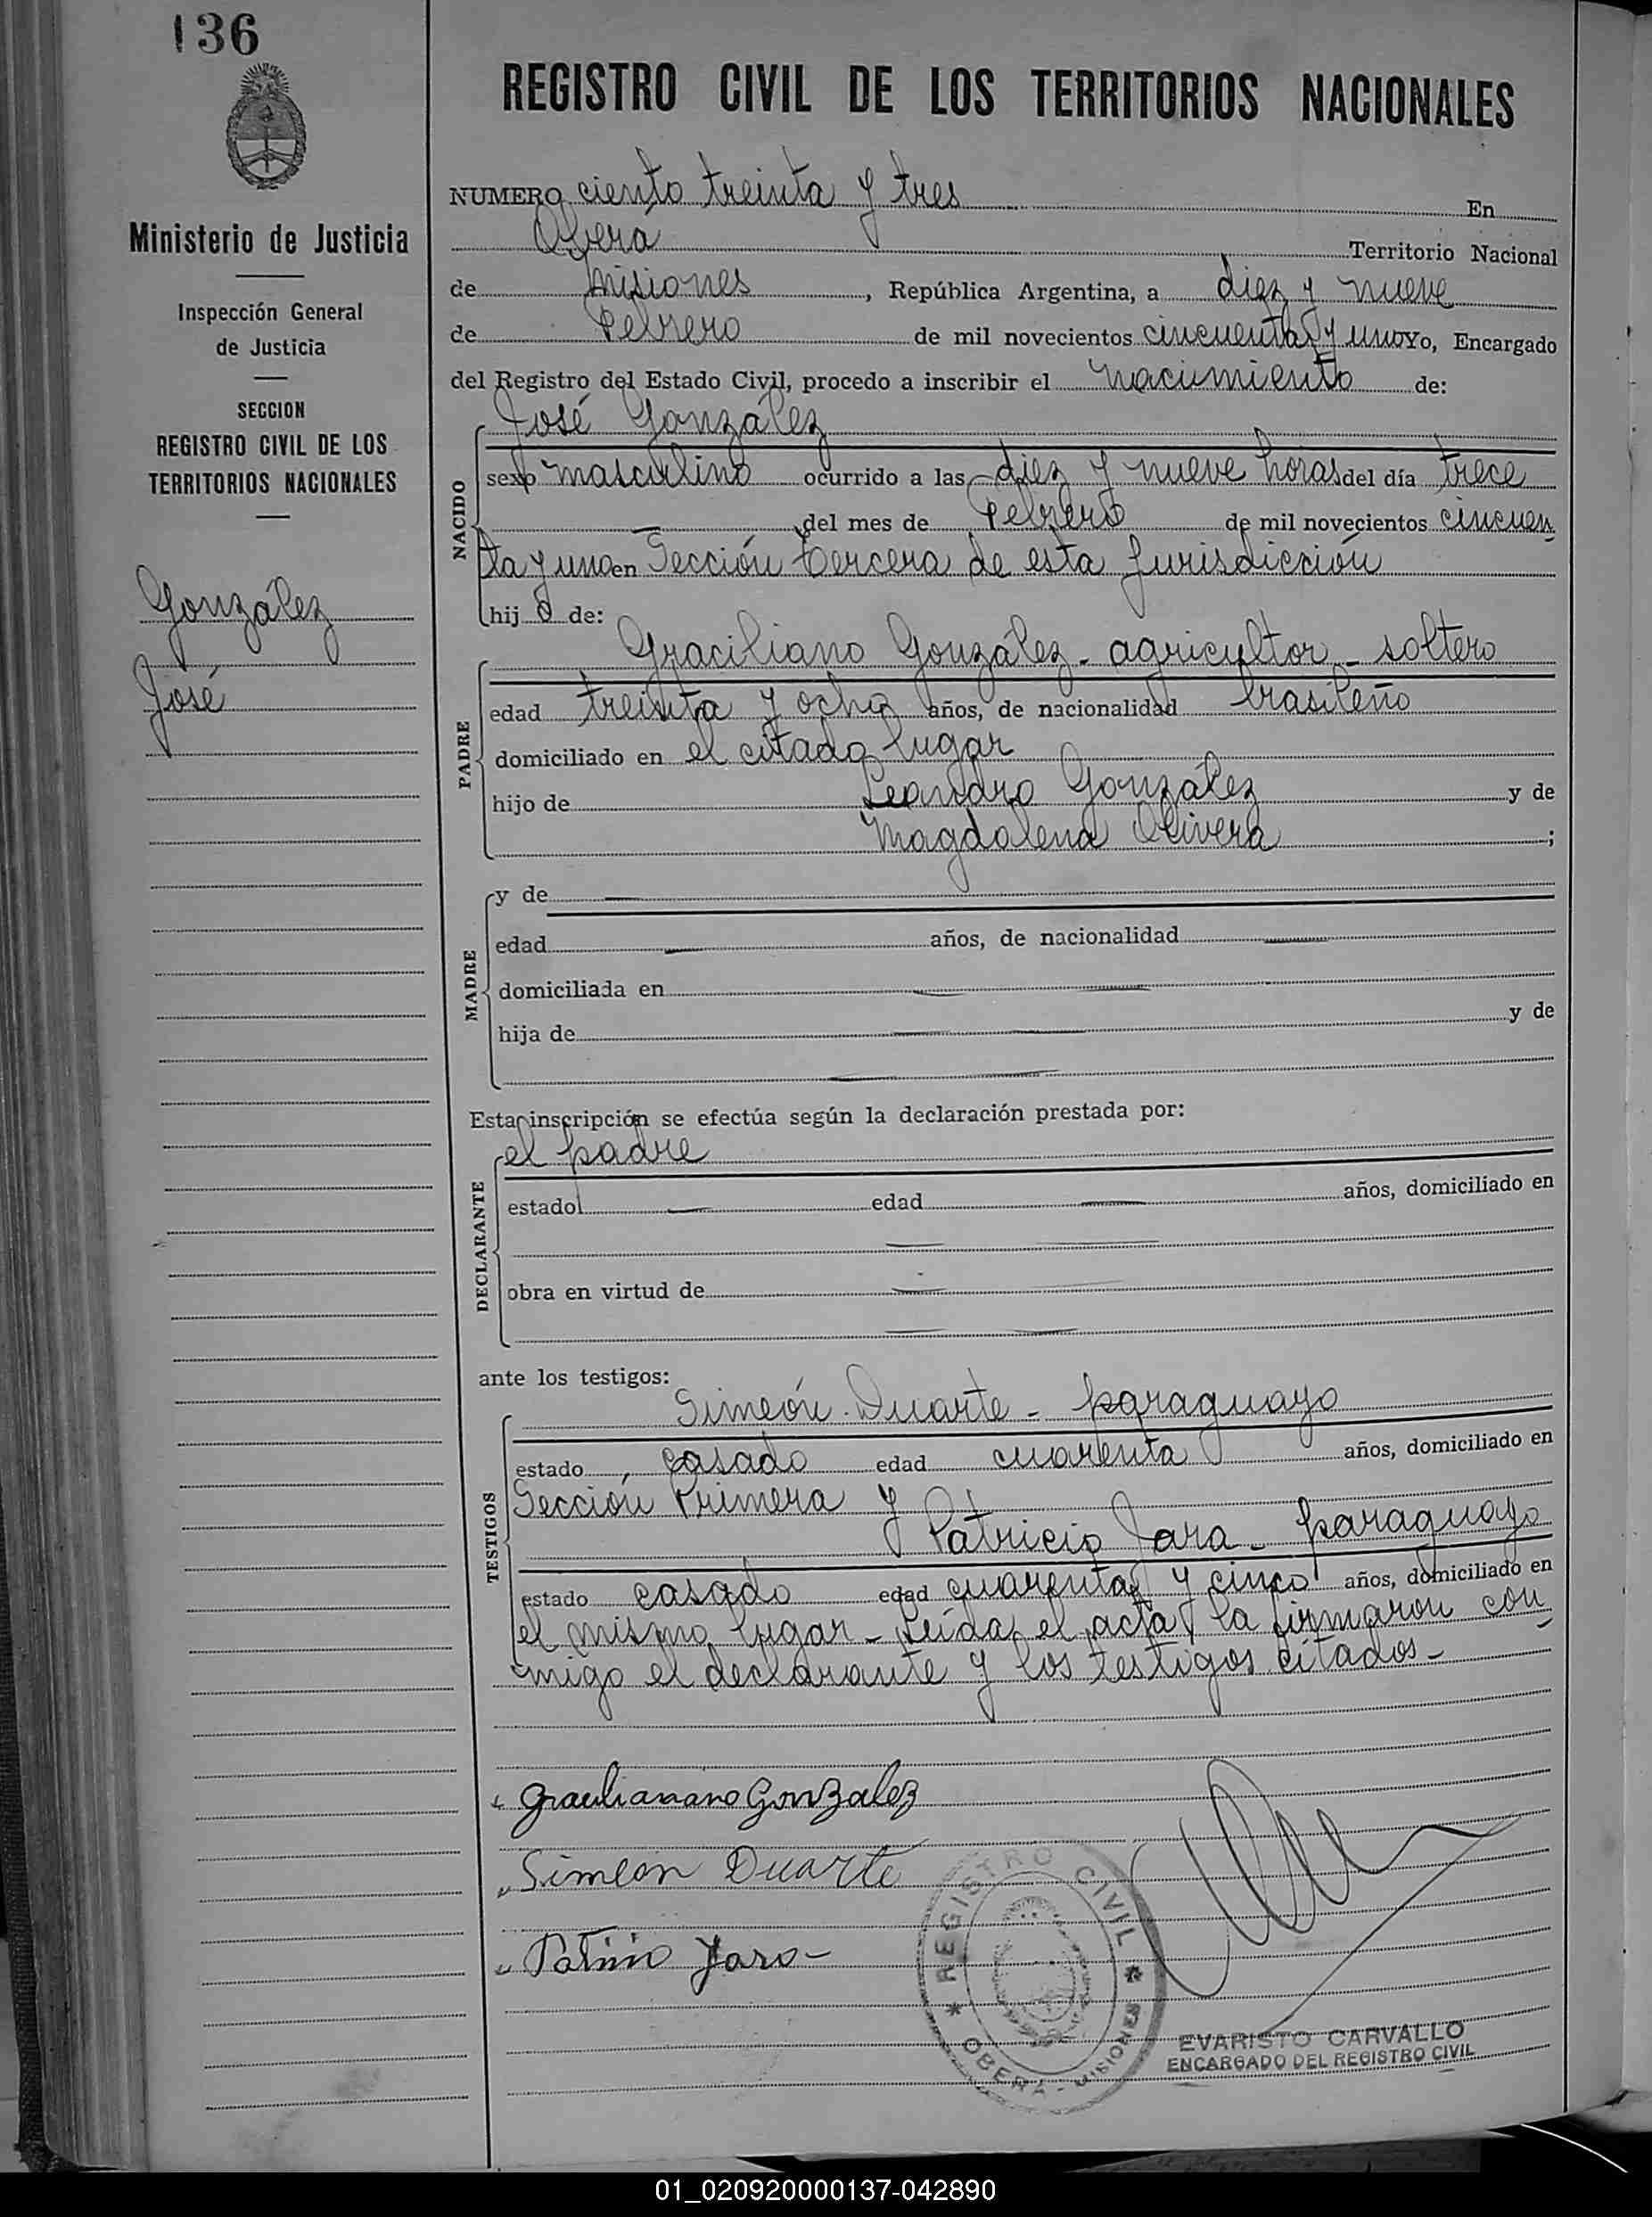 136
REGISTRO CIVIL DE LOS TERRITORIOS NACIONALES
Ministerio de Justicia
Inspección General
de Justicia
SECCION
REGISTRO CIVIL DE LOS
TERRITORIOS NACIONALES
González
José
NUMERO ciento treinta y tres En
Oberá Territorio Nacional
de Misiones, República Argentina, a diez y nueve
de Febrero de mil novecientos cincuenta y uno Yo, Encargado
del Registro del Estado Civil, procedo a inscribir el nacimiento de:
José González
NACIDO
sexo masculino ocurrido a las diez y nueve horas del día trece
del mes de Febrero de mil novecientos cincuen
ta y uno en Sección tercera de esta Jurisdicción
hij o de:
Graciliano González - agricultor - soltero
PADRE
edad treinta y ocho años, de nacionalidad brasileño
domiciliado en el citado lugar
hijo de Leandro González y de
Magdalena Olivera ;
MADRE
y de
edad años, de nacionalidad
domiciliada en
hija de y de
Esta inscripción se efectúa según la declaración prestada por:
el padre
DECLARANTE
estado edad años, domiciliado en
obra en virtud de
ante los testigos:
Simeón Duarte - paraguayo
TESTIGOS
estado casado edad cuarenta años, domiciliado en
Sección Primera y
Patricio Jara - paraguayo
estado casado edad cuarenta y cinco años, domiciliado en
el mismo lugar - Leída el acta la firmaron con
migo el declarante y los testigos citados -
Graulianano Gonzalez
Simeon Duarte
Patricio Jara -
REGISTRO CIVIL
OBERÁ - MISIONES
EVARISTO CARVALLO
ENCARGADO DEL REGISTRO CIVIL
01_020920000137-042890